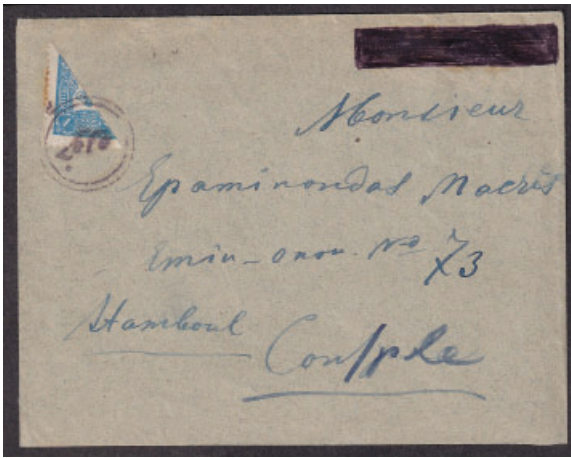 Monsieur
Epaminondas Macris
Emin-onou. No 73
Stamboul
Consple